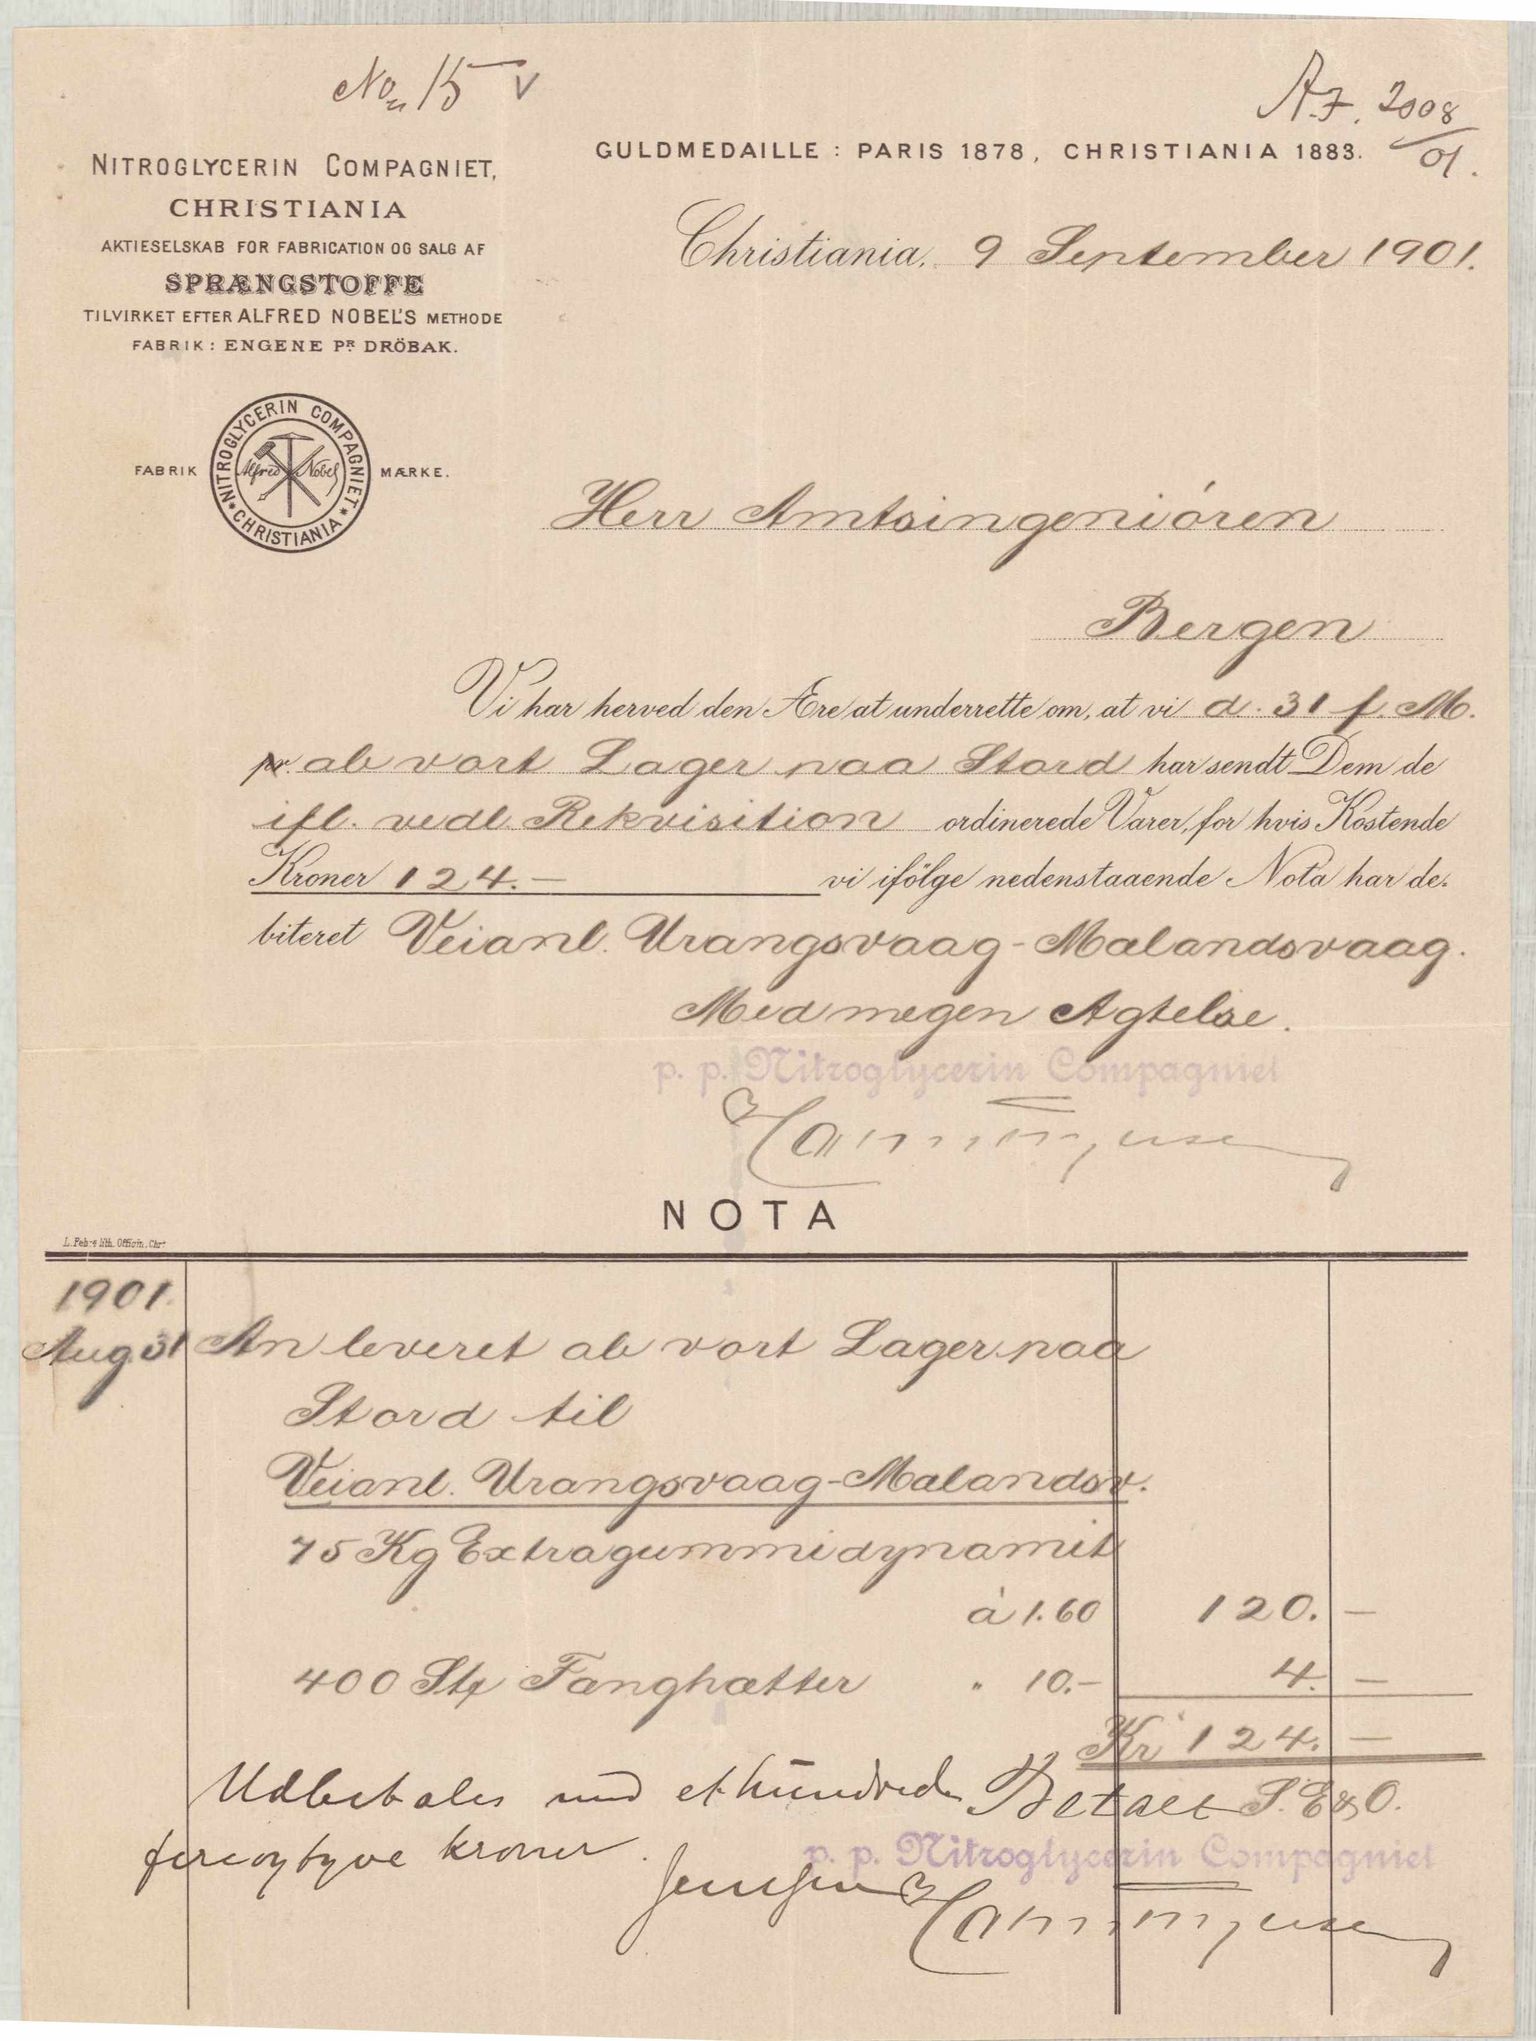 No 15 V
A.J. 2008/01.
NITROGLYCERIN COMPAGNIET,
CHRISTIANIA
AKTIESELSKAB FOR FABRICATION OG SALG AF
SPRÆNGSTOFFE
TILVIRKET EFTER ALFRED NOBEL'S METHODE
FABRIK: ENGENE PR DRÖBAK.
GULDMEDAILLE: PARIS 1878, CHRISTIANIA 1883.
Christiania, 9 September 1901.
FABRIK MÆRKE.
NITROGLYCERIN COMPAGNIET * CHRISTIANIA *
Alfred Nobel
Herr Amtsingeniören
Bergen
Vi har herved den Ære at underrette om, at vi d. 31 f. M.
pr. ab vort Lager paa Stord har sendt Dem de
ifl. vedl. Rekvisition ordinerede Varer, for hvis Kostende
Kroner 124.— vi ifölge nedenstaaende Nota har de-
biteret Veianl. Urangsvaag-Mælandsvaag.
Med megen Agtelse.
p. p. Nitroglycerin Compagniet
NOTA
1901.
Aug. 31 An leveret ab vort Lager paa
Stord til
Veianl. Urangsvaag-Mælandsv.
75 Kg Extragummidynamit
à 1.60 120. —
400 Stk Fænghætter " 10.— 4. —
Kr 124. —
Udbetales med et hundrede
fireogtyve kroner.
Betalt S. E & O.
p. p. Nitroglycerin Compagniet